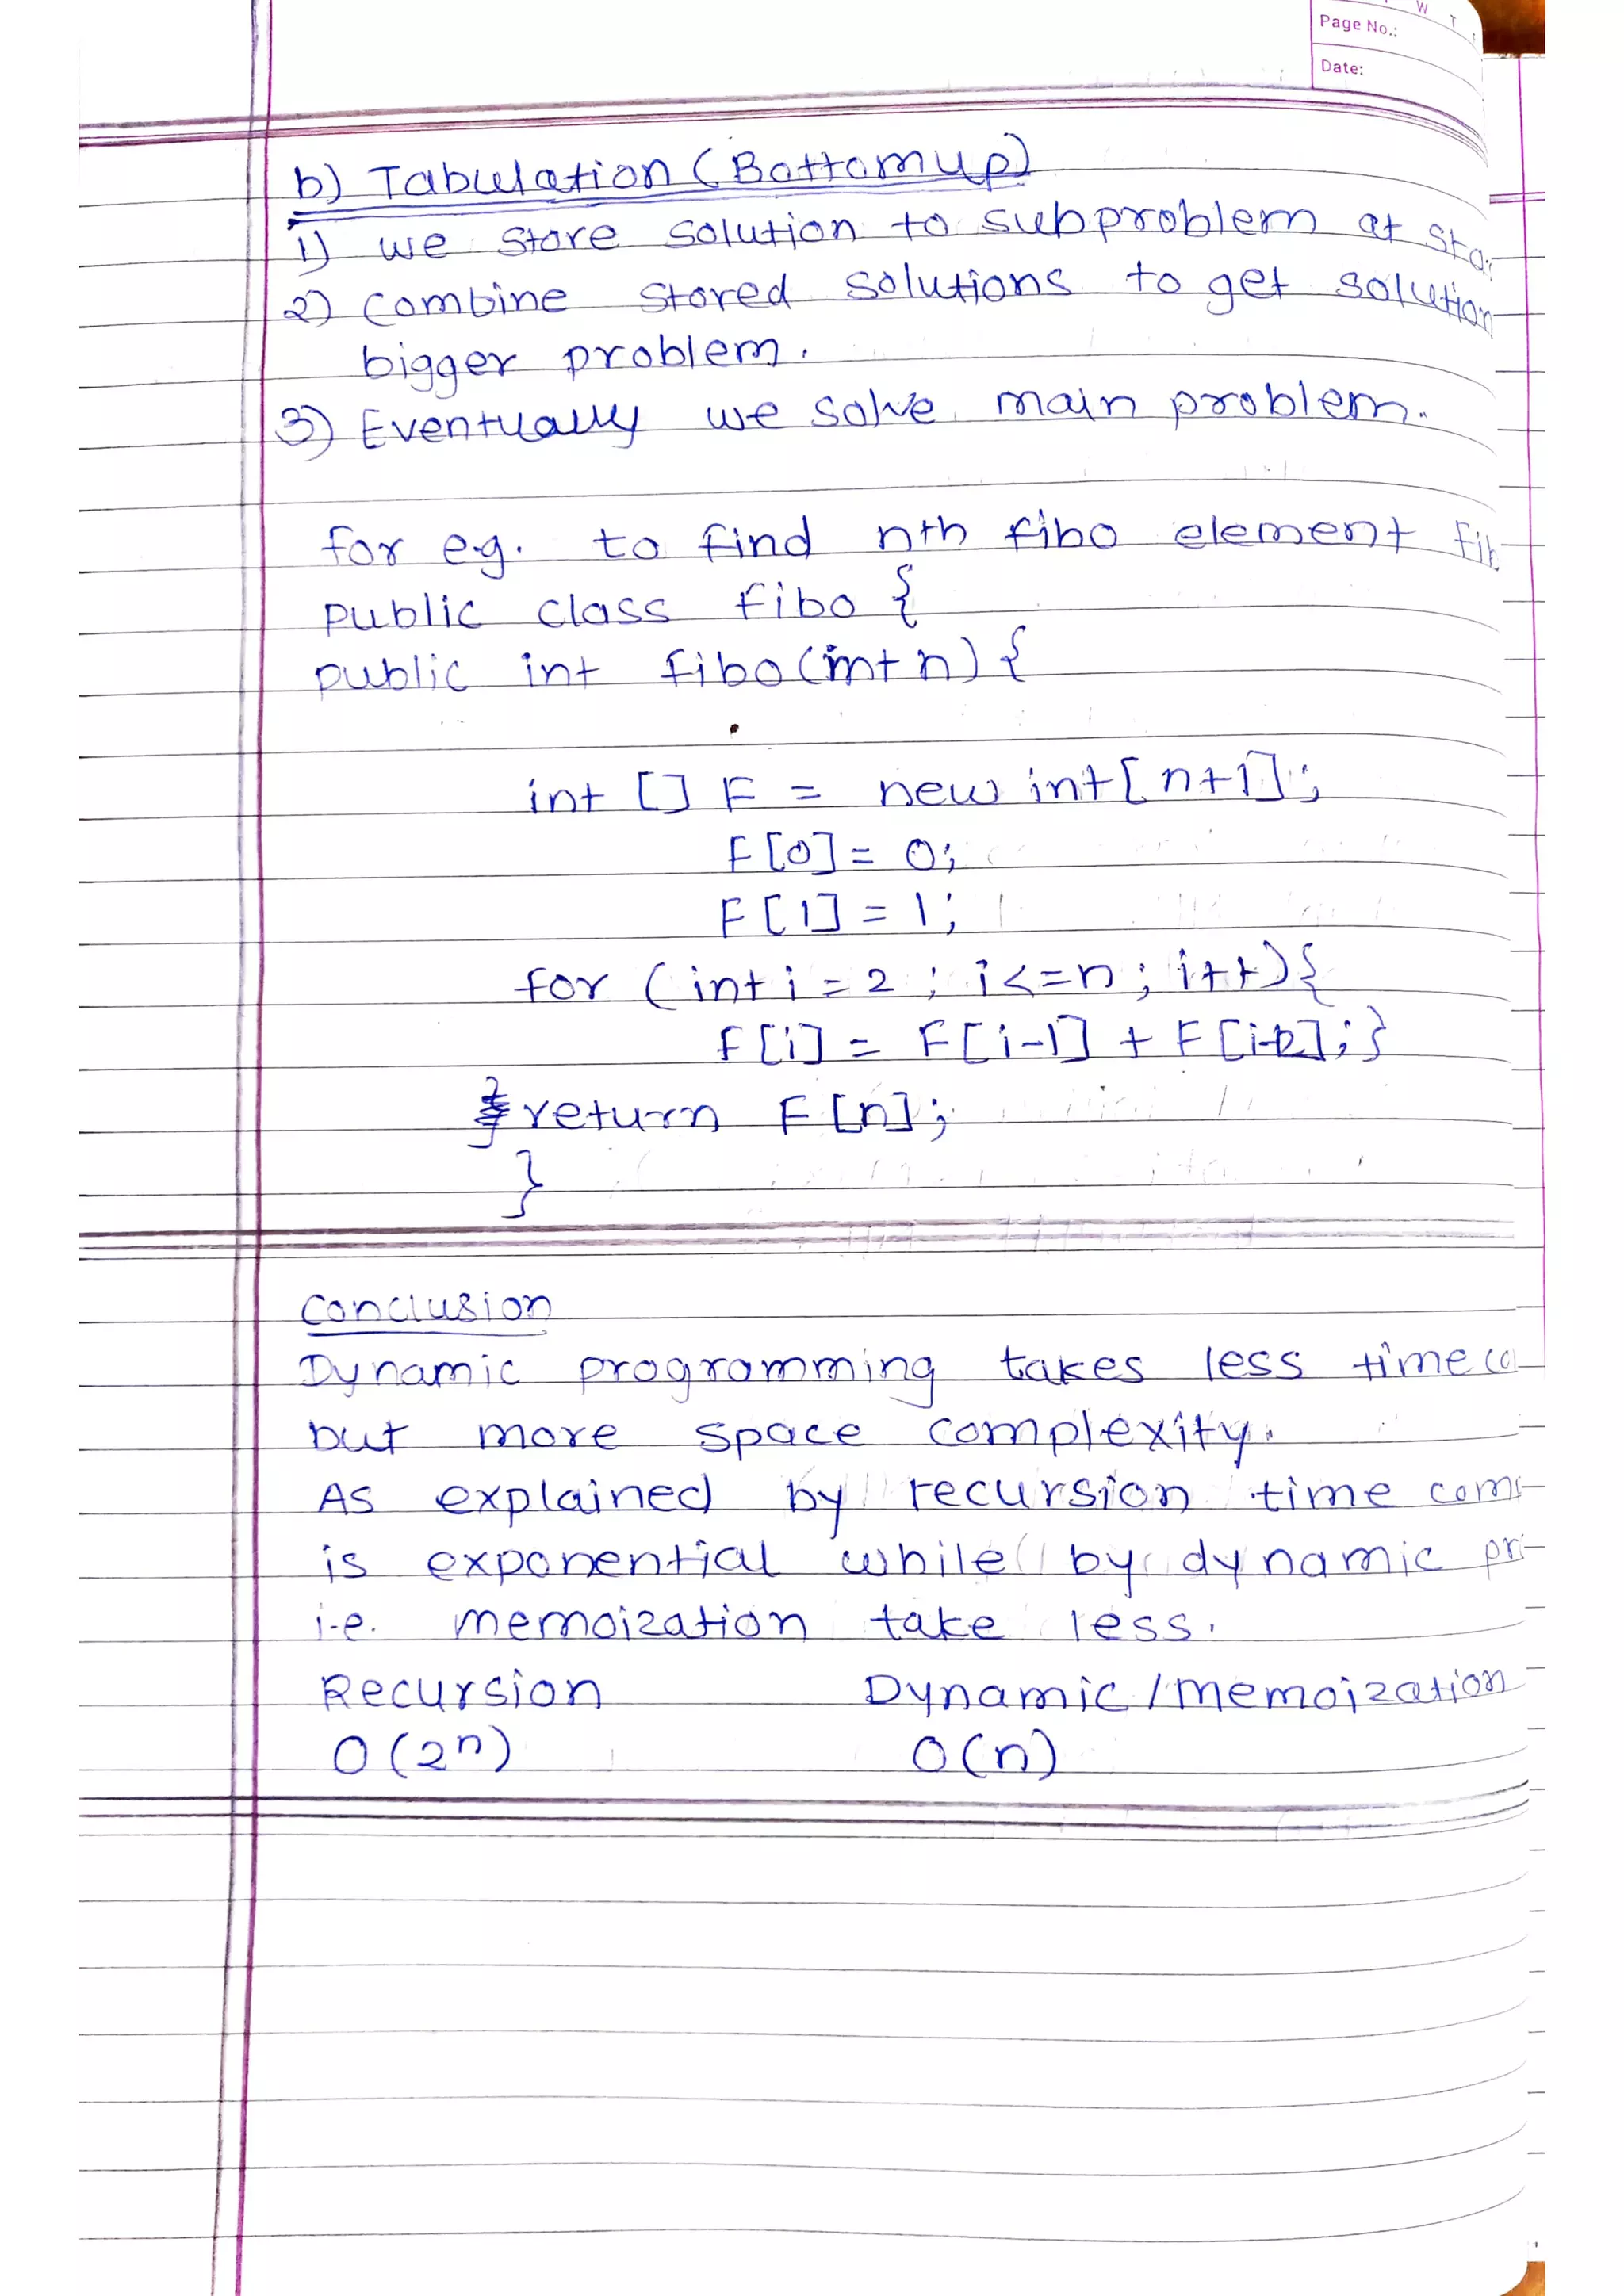 W T
Page No.:
Date:
b) Tabulation (Bottomup)
1) we store solution to subproblem at
2) Combine stored solutions to get solution
bigger problem.
3) Eventually we solve main problem.
for e.g. to find nth fibo element
public class fibo {
public int fibo(int n) {
int [] F = new int[n+1];
F[0] = 0;
F[1] = 1;
for (int i = 2 ; i<=n ; i++){
F[i] = F[i-1] + F[i-2];}
return F[n];
}
Conclusion
Dynamic programming takes less time
but more space complexity.
As explained by recursion time
is exponential while by dynamic
i.e. memoization take less.
Recursion Dynamic/memoization
O(2ⁿ) O(n)